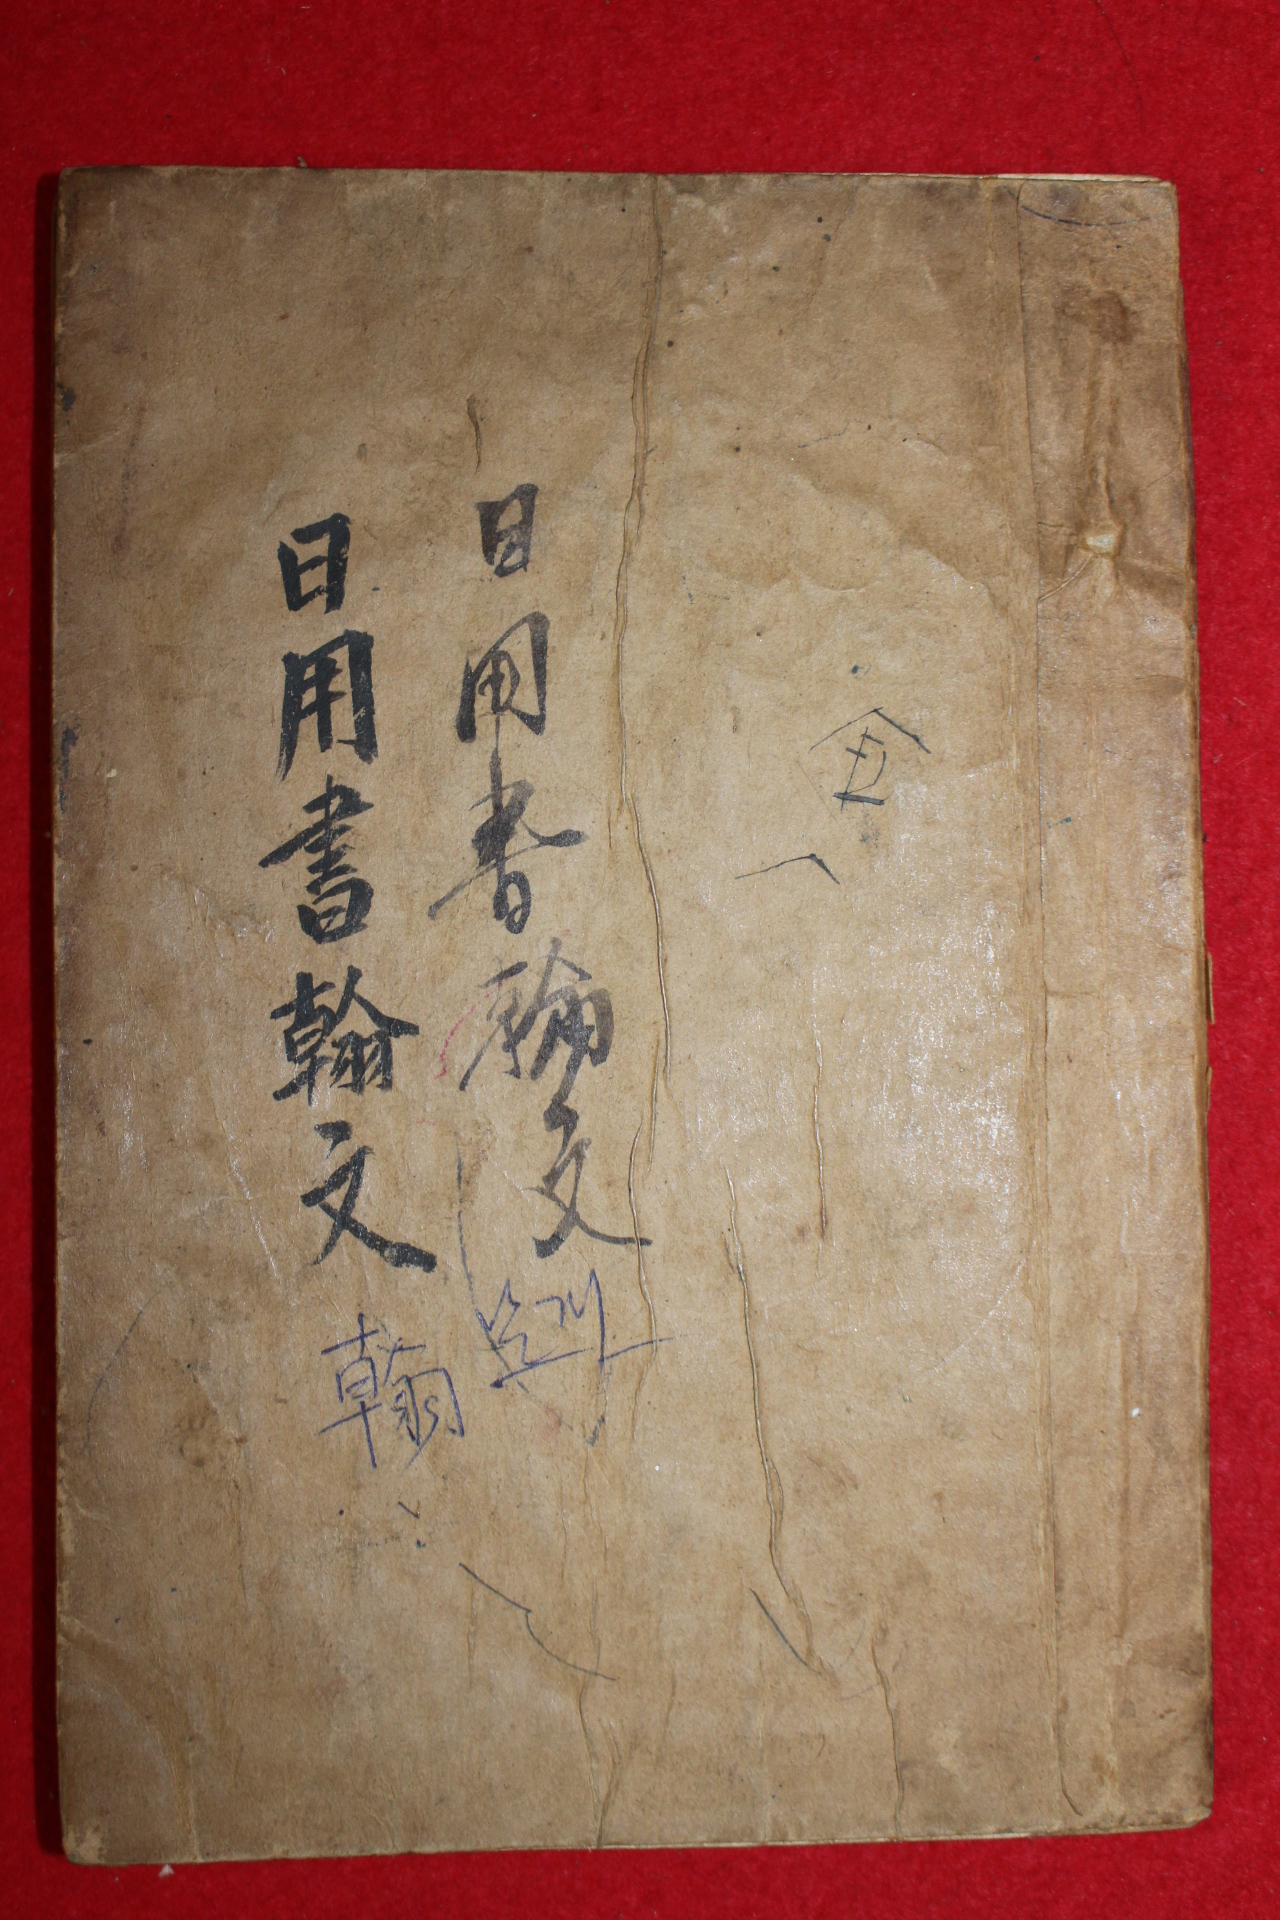 日用書翰文
日用書翰文
翰